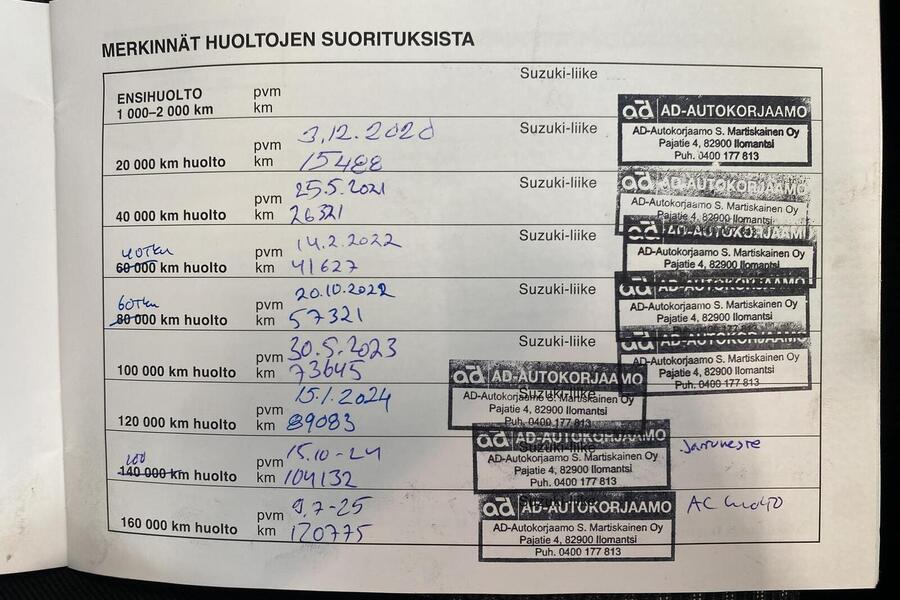 MERKINNÄT HUOLTOJEN SUORITUKSISTA
Suzuki-liike
ENSIHUOLTO pvm
1 000–2 000 km km
ad AD-AUTOKORJAAMO
AD-Autokorjaamo S. Martiskainen Oy
Pajatie 4, 82900 Ilomantsi
Puh. 0400 177 813
Suzuki-liike
pvm 3.12.2020
20 000 km huolto km 15488
Suzuki-liike
ad AD-AUTOKORJAAMO
AD-Autokorjaamo S. Martiskainen Oy
Pajatie 4, 82900 Ilomantsi
pvm 25.5.2021
40 000 km huolto km 26321
Suzuki-liike
ad AD-AUTOKORJAAMO
AD-Autokorjaamo S. Martiskainen Oy
Pajatie 4, 82900 Ilomantsi
40TKM pvm 14.2.2022
60 000 km huolto km 41627
Suzuki-liike
ad AD-AUTOKORJAAMO
AD-Autokorjaamo S. Martiskainen Oy
Pajatie 4, 82900 Ilomantsi
60TKM pvm 20.10.2022
80 000 km huolto km 57321
Suzuki-liike
ad AD-AUTOKORJAAMO
AD-Autokorjaamo S. Martiskainen Oy
Pajatie 4, 82900 Ilomantsi
Puh. 0400 177 813
pvm 30.5.2023
100 000 km huolto km 73645
Suzuki-liike
ad AD-AUTOKORJAAMO
AD-Autokorjaamo S. Martiskainen Oy
Pajatie 4, 82900 Ilomantsi
Puh. 0400 177 813
pvm 15.1.2024
120 000 km huolto km 89083
Suzuki-liike
ad AD-AUTOKORJAAMO
AD-Autokorjaamo S. Martiskainen Oy
Pajatie 4, 82900 Ilomantsi
Puh. 0400 177 813
Jarruneste
100 pvm 15.10-24
140 000 km huolto km 104132
Suzuki-liike
ad AD-AUTOKORJAAMO
AD-Autokorjaamo S. Martiskainen Oy
Pajatie 4, 82900 Ilomantsi
Puh. 0400 177 813
AC huolto
pvm 9.7-25
160 000 km huolto km 120775